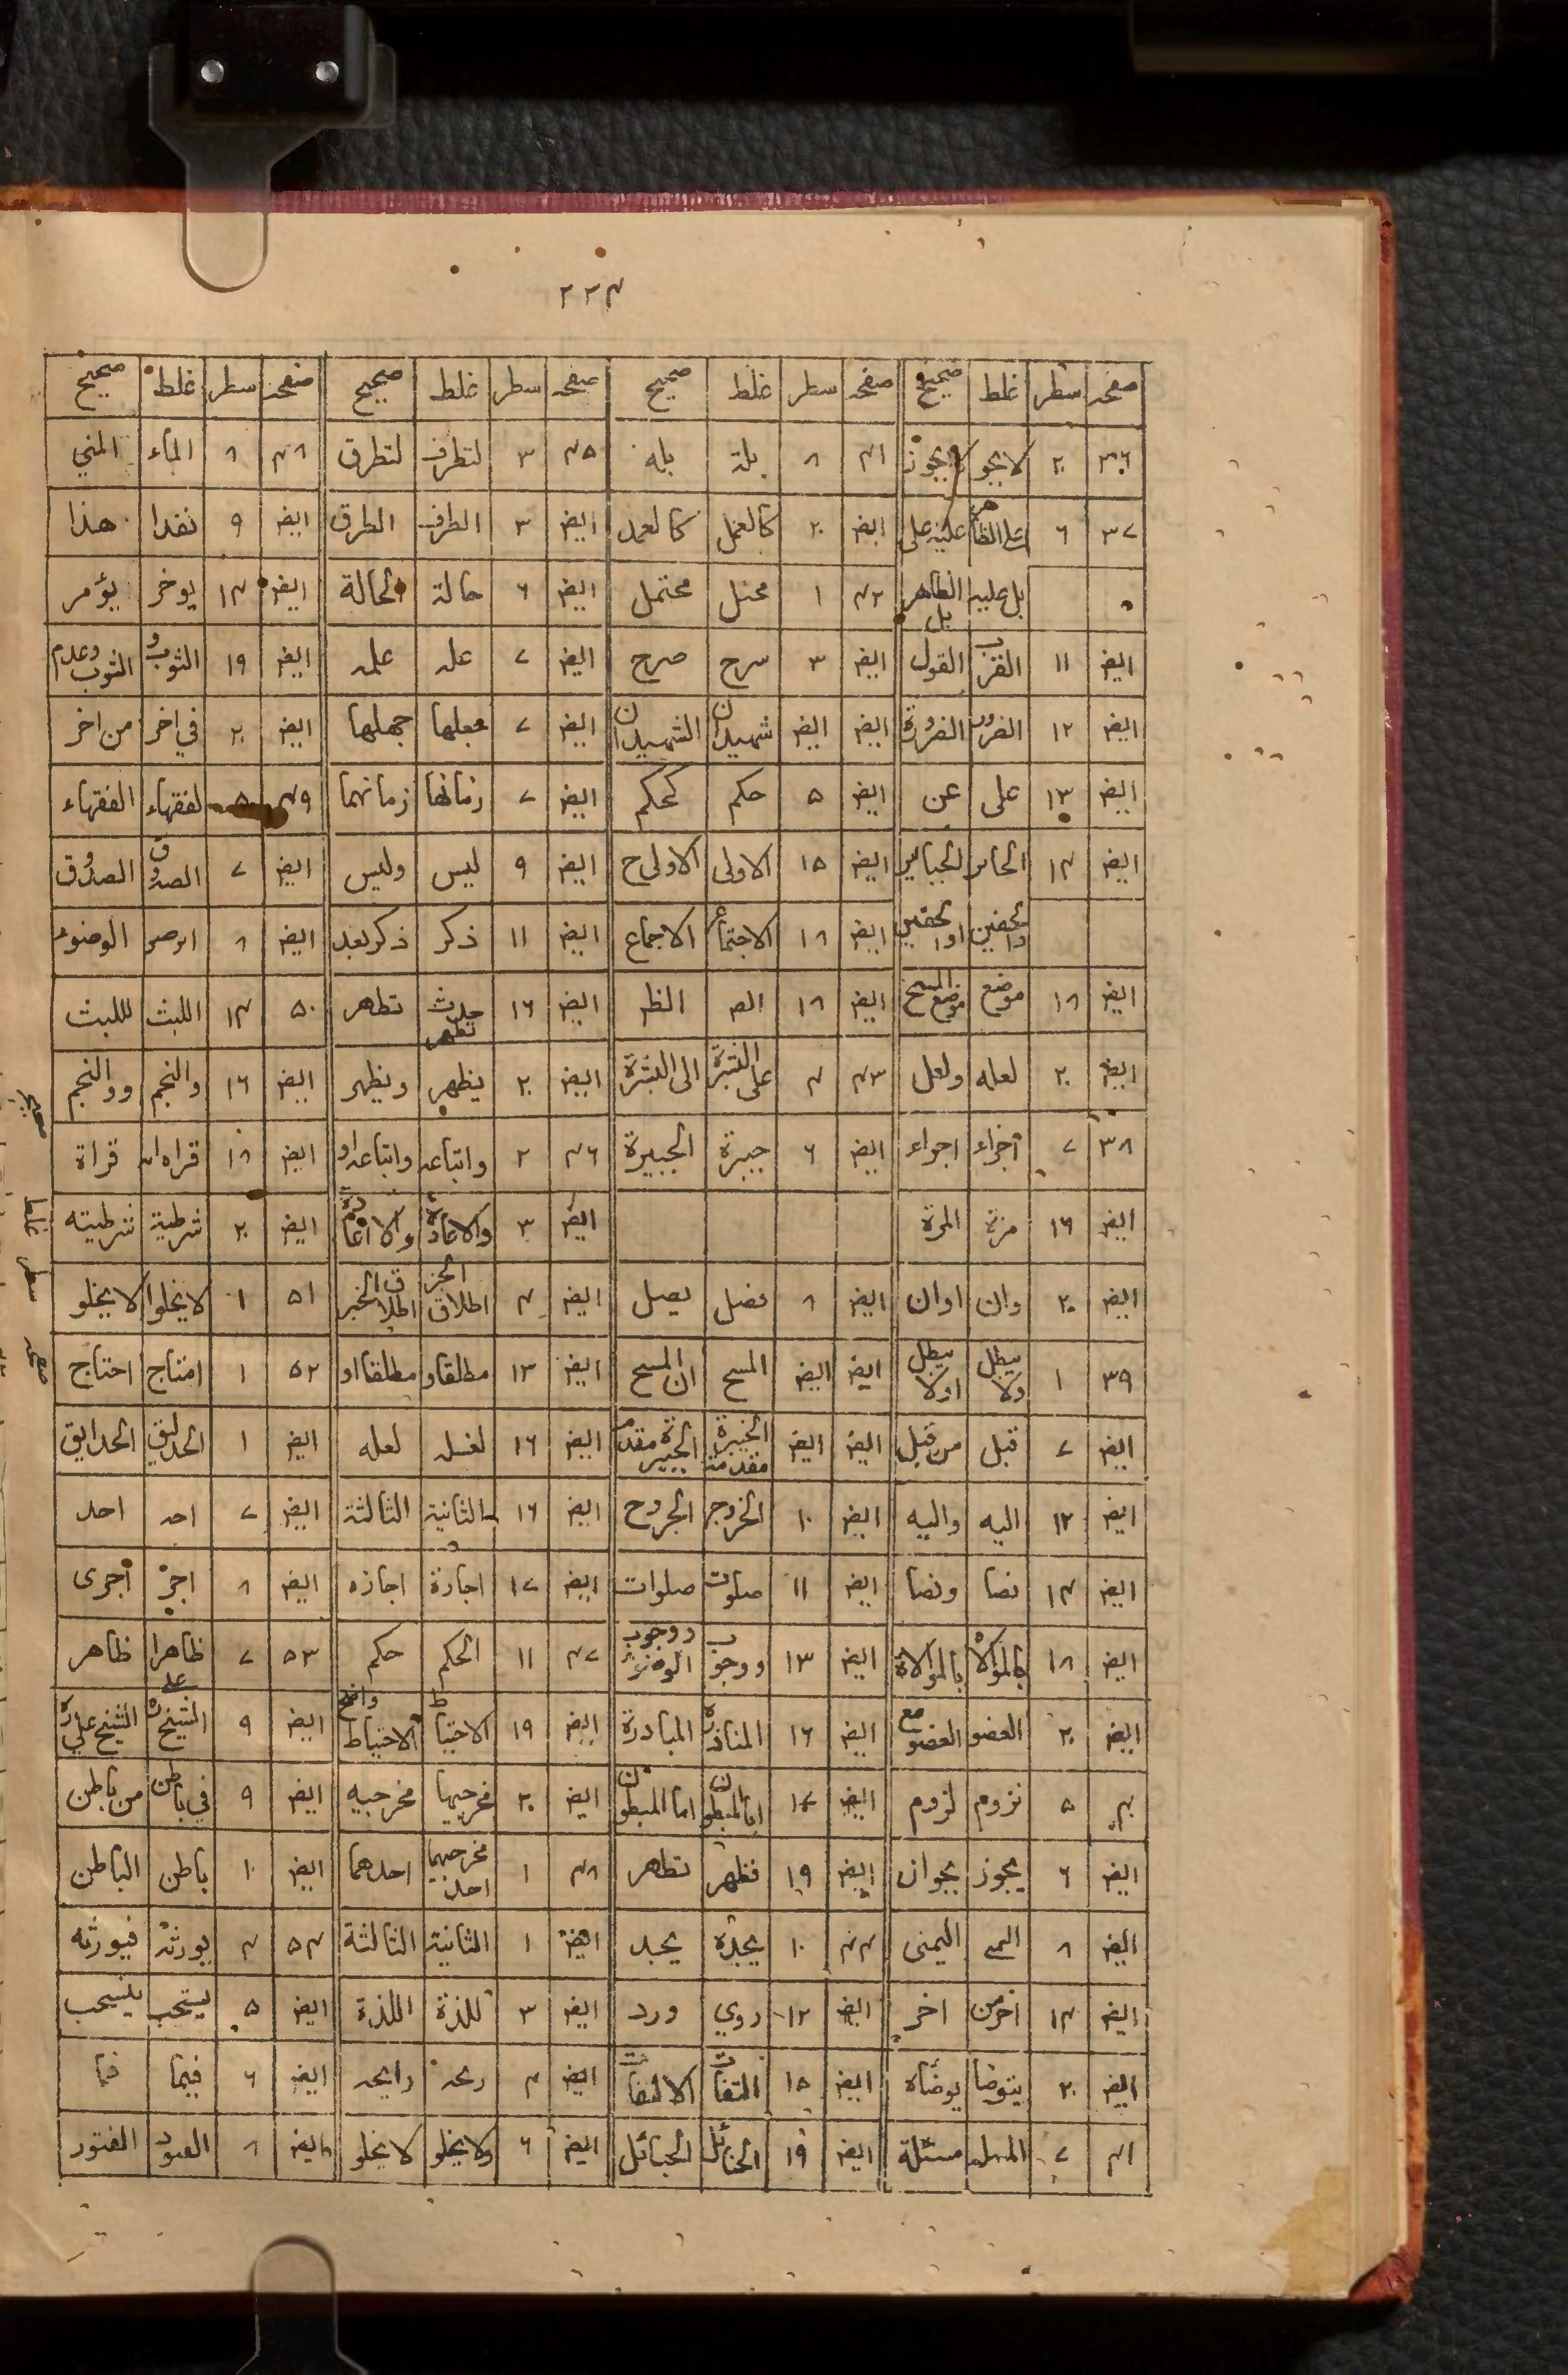 ٢٢٤
صفحه سطر غلط صحيح صفحه سطر غلط صحيح صفحه سطر غلط صحيح صفحه سطر غلط صحيح
٣٦ ٢٠ لايجو لايجوز ٤١ ٨ بلة بله ٤٥ ٣ لتطرف لتطرق ٤٨ ٨ الماء المني
٣٧ ٦ على الظاهر عليه على ايضا ٢٠ كالعمل كالعمد ايضا ٣ الطرف الطرق ايضا ٩ نقدا هذا
بل عليه الظاهر بل ٤٢ ١ محتل محتمل ايضا ٦ حالة الحالة ايضا ١٤ يوخر يؤمر
ايضا ١١ القرب القول ايضا ٣ سرح صرح ايضا ٧ عله علمه ايضا ١٩ الثوب و الثوب وعدم
ايضا ١٢ الضرور الضرورة ايضا ايضا شهيدان الشهيدان ايضا ٧ معلها جهلها ايضا ٢٠ في اخر من اخر
ايضا ١٣ على عن ايضا ٥ حكم كحكم ايضا ٧ زمانها زمانهما ٤٩ ٥ لفقهاء الفقهاء
ايضا ١٤ الحاير الجباير ايضا ١٥ الاولى الاولى ح ايضا ٩ ليس وليس ايضا ٧ الصدوق الصدوق
والخفين اوالخفين ايضا ١٨ الاجتماع الاجماع ايضا ١١ ذكر ذكر بعد ايضا ٨ الوضوء
ايضا ١٨ موضع موضع المسح ايضا ١٨ الط الظ ايضا ١٦ حدث تطهر تطهر ٥٠ ١٤ اللبث لللبث
ايضا ٢٠ لعله ولعل ٤٣ ٤ على البشرة الى البشرة ايضا ٢٠ يظهر ويظهر ايضا ١٦ والنجم ووالنجم
٣٨ ٧ اجزاء اجراء ايضا ٦ جبيرة الجبيرة ٤٦ ٢ واتباعه واتباعه او ايضا ١٨ قراة
ايضا ١٦ مرة المرة ايضا ٣ والاعادة والا اعادة ايضا ٢٠ شرطية شرطيته
ايضا ٢٠ وان اوان ايضا ٨ نصل يصل ايضا ٤ اطلاق الخبر اطلاق الخبر ٥١ ١ لايخلوا لايخلو
٣٩ ١ يبطل ولا يبطل اولا ايضا ايضا المسح ان المسح ايضا ١٣ مطلقاو مطلقااو ٥٢ ١ امتاج احتاج
ايضا ٧ قبل من قبل ايضا ايضا الجبيرة مقدمة الجبيرة مقدمة ايضا ١٦ لغسله لعله ايضا ١ الحدليق الحدايق
ايضا ١٢ اليه واليه ايضا ١٠ الخروج الجروح ايضا ١٦ الثانية الثالثة ايضا ٧ احد احد
ايضا ١٤ نصا ونصا ايضا ١١ صلوت صلوات ايضا ١٧ اجارة اجازه ايضا ٨ اجر اجرى
ايضا ١٨ كالموالاة بالموالاة ايضا ١٣ ووجوب ووجوب الوضوء ٤٧ ١١ الحكم حكم ٥٣ ٧ ظاهرا ظاهر
ايضا ٢٠ العضو العضو مع ايضا ١٦ المناذرة المبادرة ايضا ١٩ الاحتياط الاحتياط واضح ايضا ٩ الشيخ على الشيخ علي
٤٠ ٥ نزوم لزوم ايضا ١٧ اما المبطون اما المبطون ايضا ٢٠ مخرجيها مخرجيه ايضا ٩ في باطن من باطن
ايضا ٦ يجوز بجواز ايضا ١٩ فظهر تطهر ٤٨ ١ مخرجيهما احد احدهما ايضا ١٠ باطن الباطن
ايضا ٨ اليمنى ٤٤ ١٠ يجده يجد ايضا ١ الثانية الثالثة ٥٤ ٤ يورثه فيورثه
ايضا ١٤ اخر من اخر ايضا ١٢ روي ورد ايضا ٣ للذة الملذة ايضا ٥ يستحب فيستحب
ايضا ٢٠ يتوضا يوضاه ايضا ١٥ التفات الالتفات ايضا ٤ ريحه رايحه ايضا ٦ فيها فما
٤١ ٧ مسئلة ايضا ١٩ الحبائل ايضا ٦ ولايخلو لايخلو ايضا ٨ الفتور
صحيح
غلط
سطر
صفحه